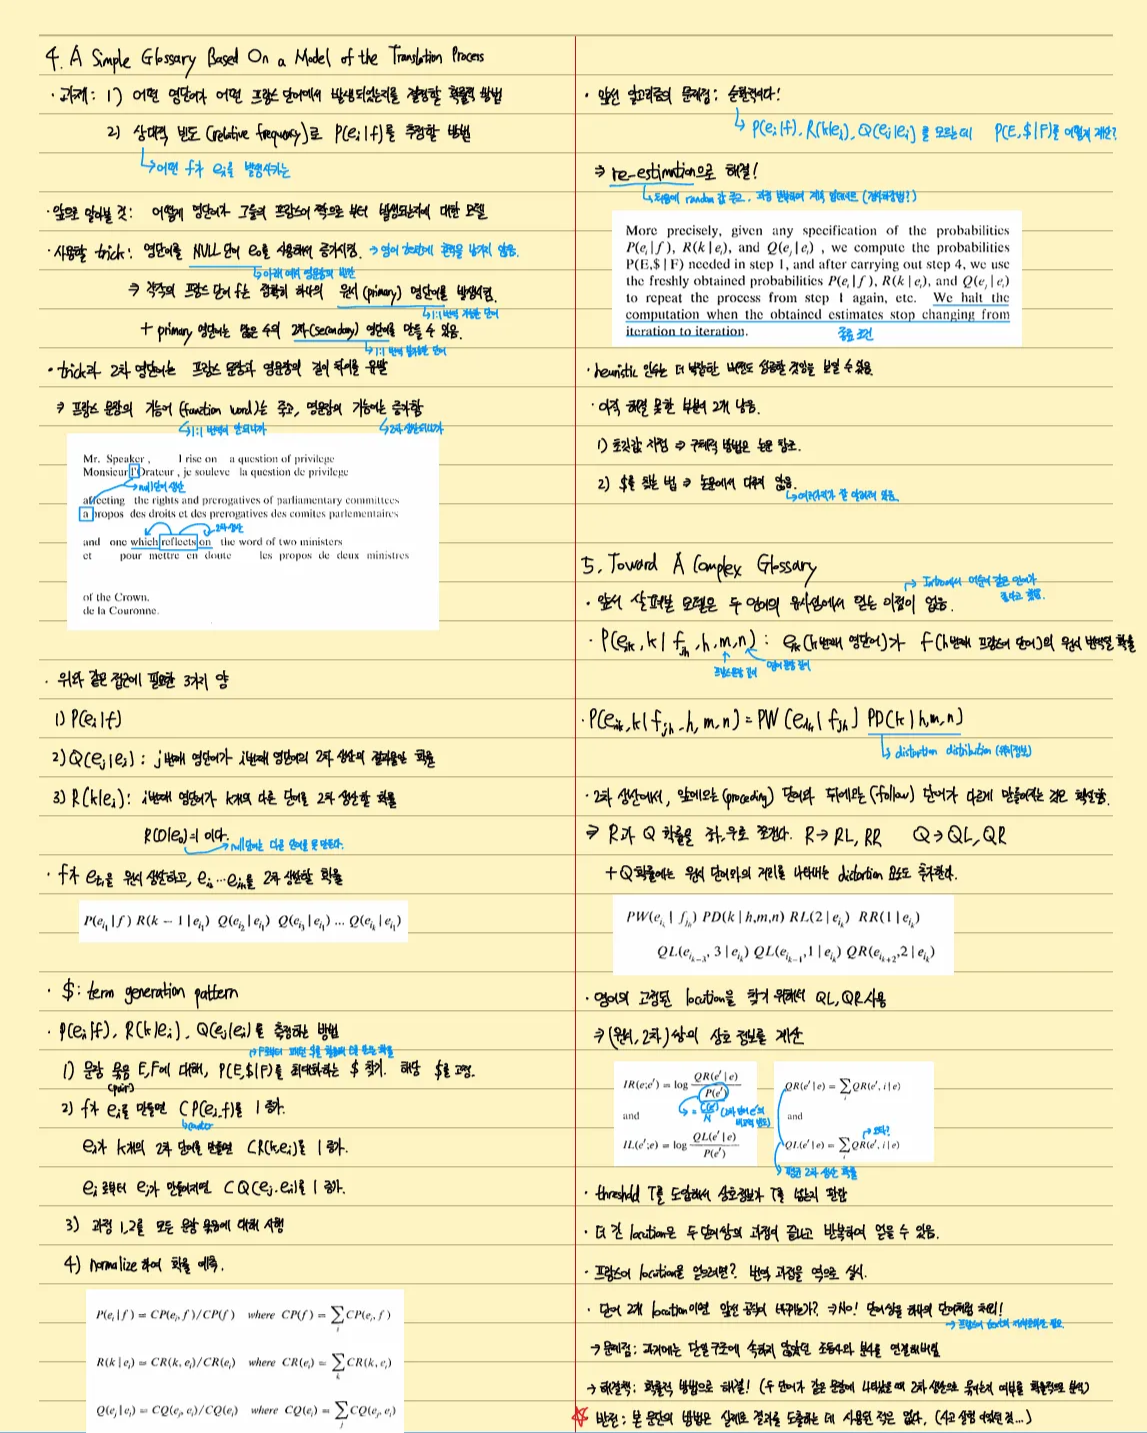 4. A Simple Glossary Based On a Model of the Translation Process
· 과제: 1) 어떤 영단어가 어떤 프랑스 단어에서 발생되었는지를 결정할 확률적 방법
2) 상대적 빈도 (relative frequency)로 P(ei|f)를 추정할 방법
↳ 어떤 f가 ei를 발생시키는
· 앞으로 알아볼 것: 어떻게 영단어가 그들의 프랑스어 짝으로 부터 발생되는지에 대한 모델
· 사용할 trick: 영단어를 NULL 단어 e0를 사용해서 증가시킴. →
⇒ 각각의 프랑스 단어 f는 정확히 하나의 원시(primary) 영단어를 발생시킴.
↳ 1:1 번역 가능한 단어
+ primary 영단어는 많은 수의 2차(secondary) 영단어를 만들 수 있음.
↳ 1:1 번역 불가능한 단어
· trick과 2차 영단어는 프랑스 문장과 영문장의 길이 차이를 유발
⇒ 프랑스 문장의 기능어 (function word)는 죽고, 영문장의 기능어는 증가함
↳ 1:1 번역이 안되니까 ↳ 2차 생산되니까
Mr. Speaker , I rise on a question of privilege
Monsieur l'Orateur , je souleve la question de privilege
→ null단어 생산
affecting the rights and prerogatives of parliamentary committees
a propos des droits et des prerogatives des comites parlementaires
→ 2차 생산
and one which reflects on the word of two ministers
et pour mettre en doute les propos de deux ministres
of the Crown.
de la Couronne.
· 위와 같은 접근에 필요한 3가지 양
1) P(ei|f)
2) Q(ej|ei) : j번째 영단어가 i번째 영단어의 2차 생산의 결과물일 확률
3) R(k|ei) : i번째 영단어가 k개의 다른 단어를 2차 생산할 확률
R(0|e0)=1 이다.
→ null단어는 다른 단어를 못 만든다.
· f가 ei1을 원시 생산하고, ei2 … eik를 2차 생산할 확률
P(ei1|f) R(k − 1|ei1) Q(ei2|ei1) Q(ei3|ei1) ... Q(eik|ei1)
· $: term generation pattern
· P(ei|f), R(k|ei), Q(ej|ei)를 측정하는 방법
1) 문장 묶음 E,F에 대해, P(E,$|F)를 최대화하는 $ 찾기. 해당 $를 고정.
(pair)
2) f가 ei를 만들면 CP(ei,f)를 1 증가.
↳ counter
ei가 k개의 2차 단어를 만들면 CR(k,ei)를 1 증가.
ei 로부터 ej가 만들어지면 CQ(ej,ei)를 1 증가.
3) 과정 1,2를 모든 문장 묶음에 대해 시행
4) normalize 하여 확률 예측.
P(ei|f) = CP(ei, f)/CP(f) where CP(f) = ∑i CP(ei, f)
R(k|ei) = CR(k, ei)/CR(ei) where CR(ei) = ∑k CR(k, ei)
Q(ej|ei) = CQ(ej, ei)/CQ(ei) where CQ(ei) = ∑j CQ(ej, ei)
· 앞선 알고리즘의 문제점: 순환적이다!
↳ P(ei|f), R(k|ei), Q(ej|ei)를 모르는데 P(E,$|F)를 어떻게 계산?
⇒ re-estimation으로 해결!
↳ 처음에 random 값 주고, 과정 반복하며 계속 업데이트 (경사하강법?)
More precisely, given any specification of the probabilities
P(ei|f), R(k|ei), and Q(ej|ei) , we compute the probabilities
P(E,$|F) needed in step 1, and after carrying out step 4, we use
the freshly obtained probabilities P(ei|f), R(k|ei), and Q(ej|ei)
to repeat the process from step 1 again, etc. We halt the
computation when the obtained estimates stop changing from
iteration to iteration.
종료 조건
· heuristic 인수는 더 박탈한 버전도 성공할 것임을 보일 수 있음.
· 아직 해결 못한 부분이 2개 남음.
1) 초깃값 지정 ⇒ 구체적 방법은 논문 참조.
2) $를 찾는 법 ⇒ 논문에서 다루지 않음.
5. Toward A Complex Glossary
· 앞서 살펴본 모델은 두 언어의 유사성에서 얻는 이점이 없음.
→ Intro에서 어순이 같은 언어가
· P(eik, k | fjh, h, m, n) : eik(k번째 영단어)가 f(h번째 프랑스어 단어)의 원시 번역일 확률
프랑스문장 길이 영어 문장 길이
· P(eik, k | fjh, h, m, n) = PW(eik | fjh) PD(k | h,m,n)
↳ distortion distribution (위치정보)
· 2차 생산에서, 앞에오는(preceding) 단어와 뒤에오는(follow) 단어가 다르게 만들어지는 것은 확실함.
⇒ R과 Q 확률을 좌,우로 쪼갠다. R→ RL, RR Q→ QL, QR
+ Q확률에는 원시 단어와의 거리를 나타내는 distortion 요소도 추가한다.
PW(eik | fjh) PD(k | h,m,n) RL(2 | eik) RR(1 | eik)
QL(eik−3, 3 | eik) QL(eik−1,1 | eik) QR(eik+2,2 | eik)
· 영어의 고정된 location을 찾기 위해서 QL, QR 사용
⇒ (원시, 2차) 쌍의 상호 정보를 계산
IR(e;e') = log QR(e'|e) / P(e')
and
IL(e';e) = log QL(e'|e) / P(e')
QR(e'|e) = ∑i QR(e', i|e)
and
→ 오타?
QL(e'|e) = ∑i QR(e', i|e)
→ 평균 2차 생산 확률
· threshold T를 도입해서 상호정보가 T를 넘는지 판단
· 더 긴 location은 두 단어쌍의 과정이 끝나고 반복하여 얻을 수 있음.
· 프랑스어 location을 얻으려면? 번역 과정을 역으로 실시.
· 단어 2개 location이면 앞선 공식이 바뀌는가? ⇒ No! 단어쌍을 하나의 단어처럼 처리!
→ 문제점: 과거에는 단일 구조에 속하지 않았던 조동사와 분사를 연결해버림
→ 해결책: 확률적 방법으로 해결! (두 단어가 같은 문장에 나타났을 때 2차 생산으로 묶이는지 여부를 확률적으로 분석)
☆ 반전: 본 문단의 방법은 실제로 결과를 도출하는 데 사용된 적은 없다. (사고 실험 이었던 것...)